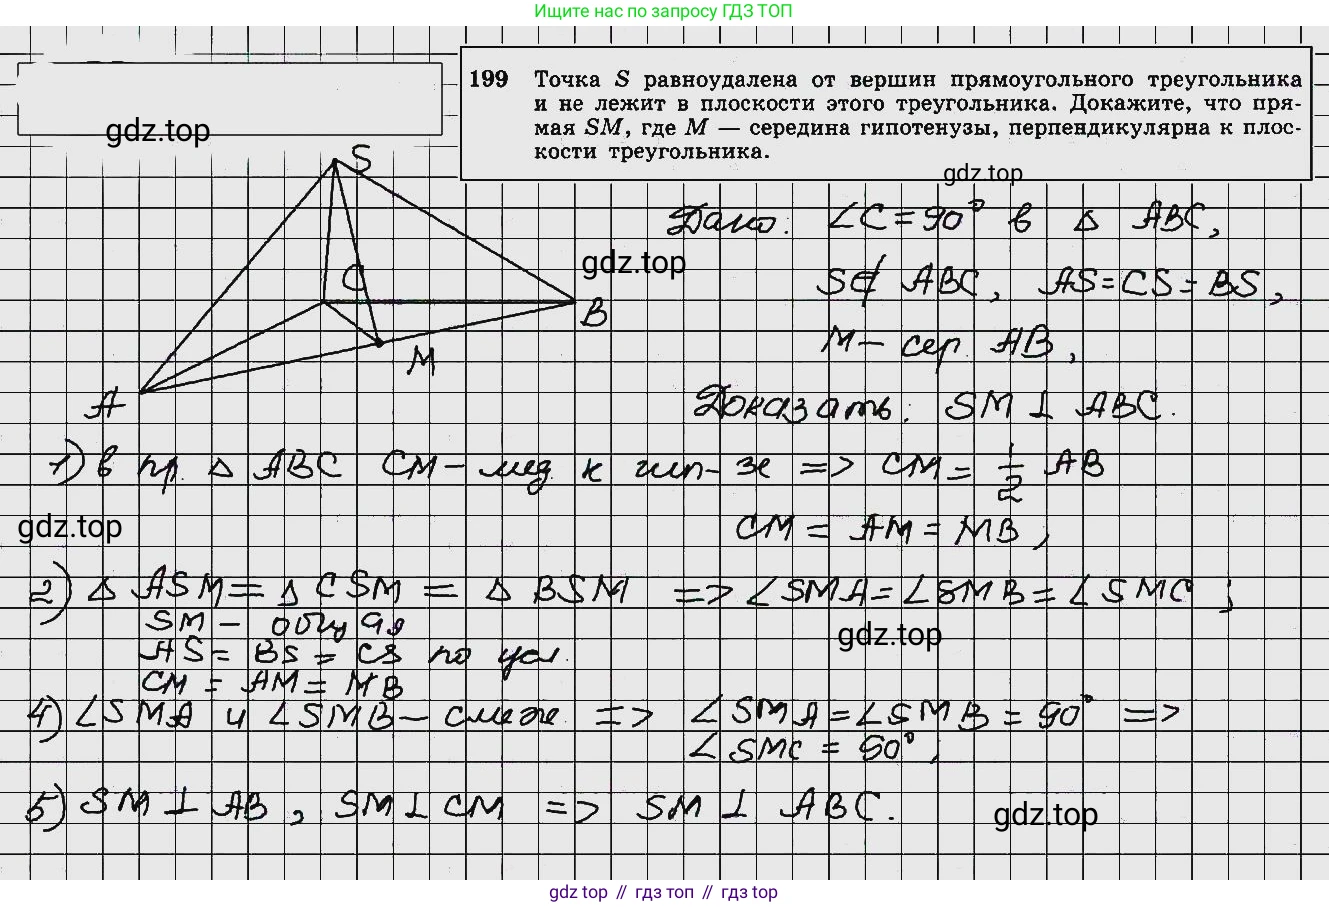 Ищите нас по запросу ГДЗ ТОП
199 Точка S равноудалена от вершин прямоугольного треугольника
и не лежит в плоскости этого треугольника. Докажите, что пря-
мая SM, где M — середина гипотенузы, перпендикулярна к плос-
кости треугольника.
gdz.top
gdz.top
S
Дано: ∠C = 90° в △ ABC,
gdz.top
C
S∉ ABC, AS = CS = BS,
B
M – сер. AB,
M
A
Доказать: SM ⊥ ABC.
1) в пр. △ ABC CM – мед. к гип-зе => CM = 1/2 AB
gdz.top
CM = AM = MB,
2) △ ASM = △ CSM = △ BSM => ∠SMA = ∠SMB = ∠SMC;
SM – общая
gdz.top
AS = BS = CS по усл.
CM = AM = MB
4) ∠SMA и ∠SMB – смеж. => ∠SMA = ∠SMB = 90° =>
∠SMC = 90°,
5) SM ⊥ AB, SM ⊥ CM => SM ⊥ ABC.
gdz.top
gdz top // гдз топ // gdz top